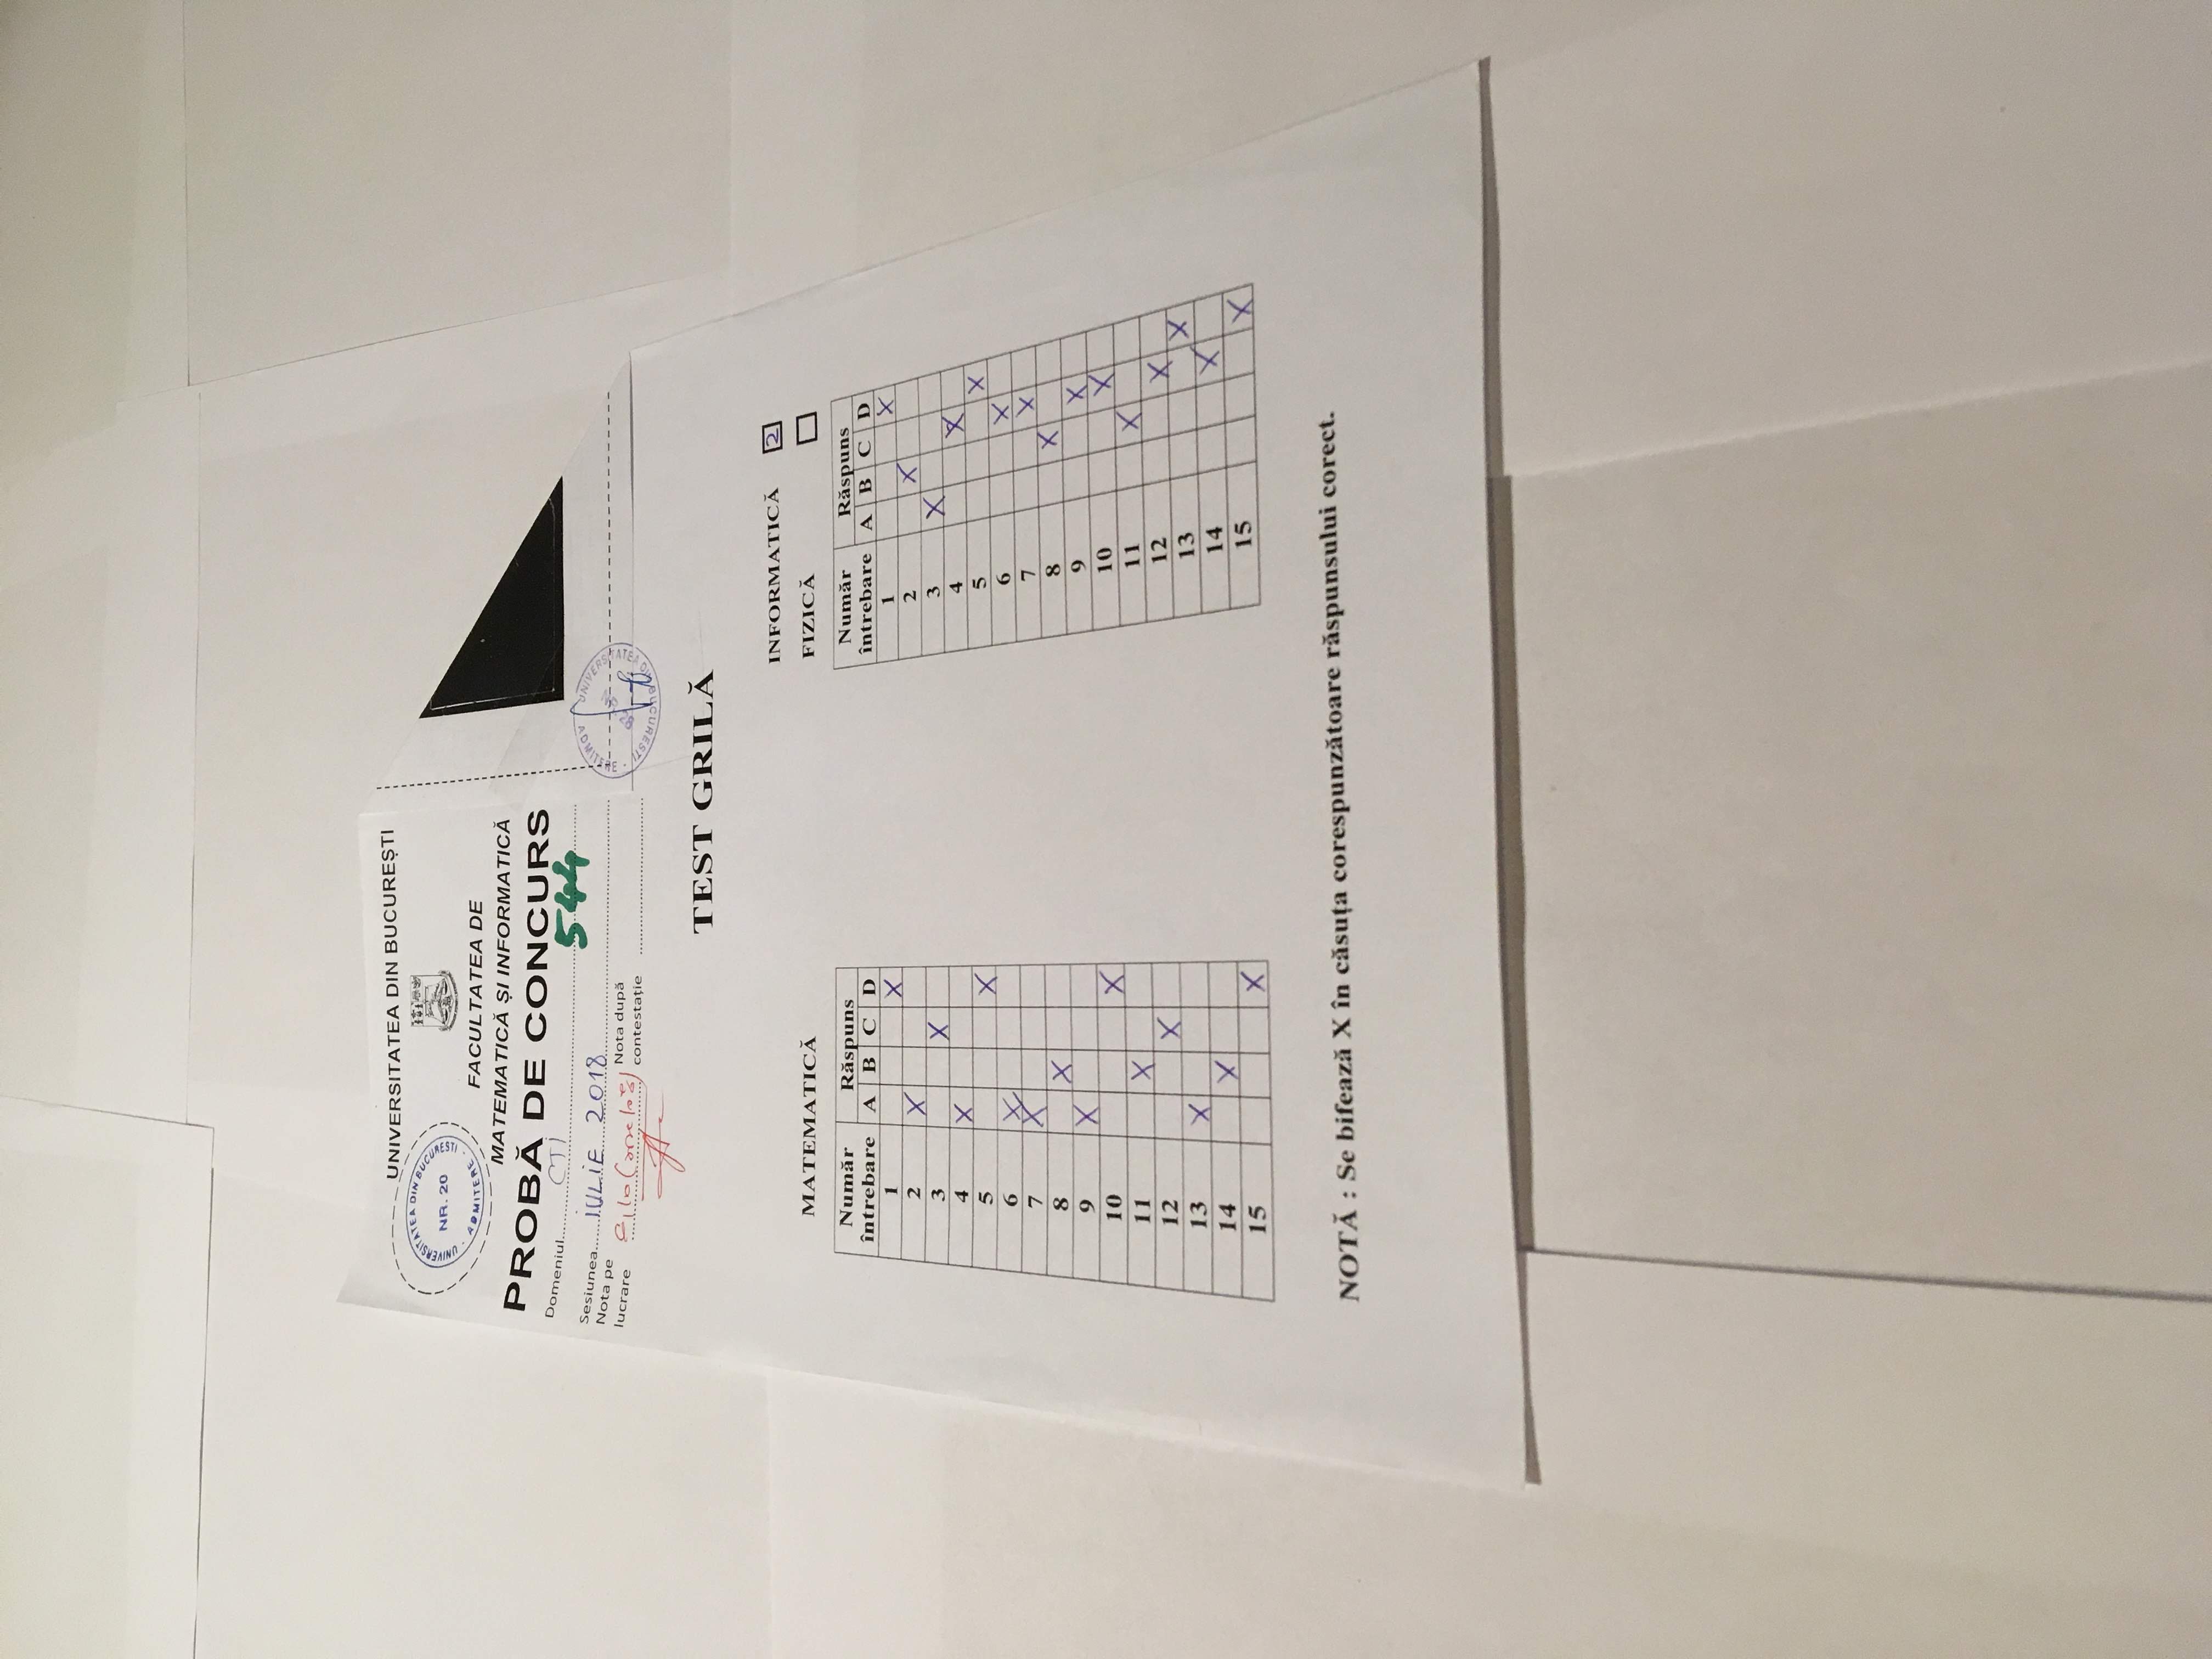 UNIVERSITATEA DIN BUCUREȘTI
UNIVERSITATEA DIN BUCUREȘTI
NR. 20
ADMITERE
FACULTATEA DE
MATEMATICĂ ȘI INFORMATICĂ
PROBĂ DE CONCURS
Domeniul CTI
544
Sesiunea IULIE 2018
Nota pe
lucrare
Nota după
contestație
UNIVERSITATEA DIN BUCUREȘTI ADMITERE
TEST GRILĂ
INFORMATICĂ 2
FIZICĂ
MATEMATICĂ
Număr întrebare Răspuns
A B C D
1 X
2 X
3 X
4 X
5 X
6 X
7 X
8 X
9 X
10 X
11 X
12 X
13 X
14 X
15 X
Număr întrebare Răspuns
A B C D
1 X
2 X
3 X
4 X
5 X
6 X
7 X
8 X
9 X
10 X
11 X
12 X
13 X
14 X
15 X
NOTĂ : Se bifează X în căsuța corespunzătoare răspunsului corect.